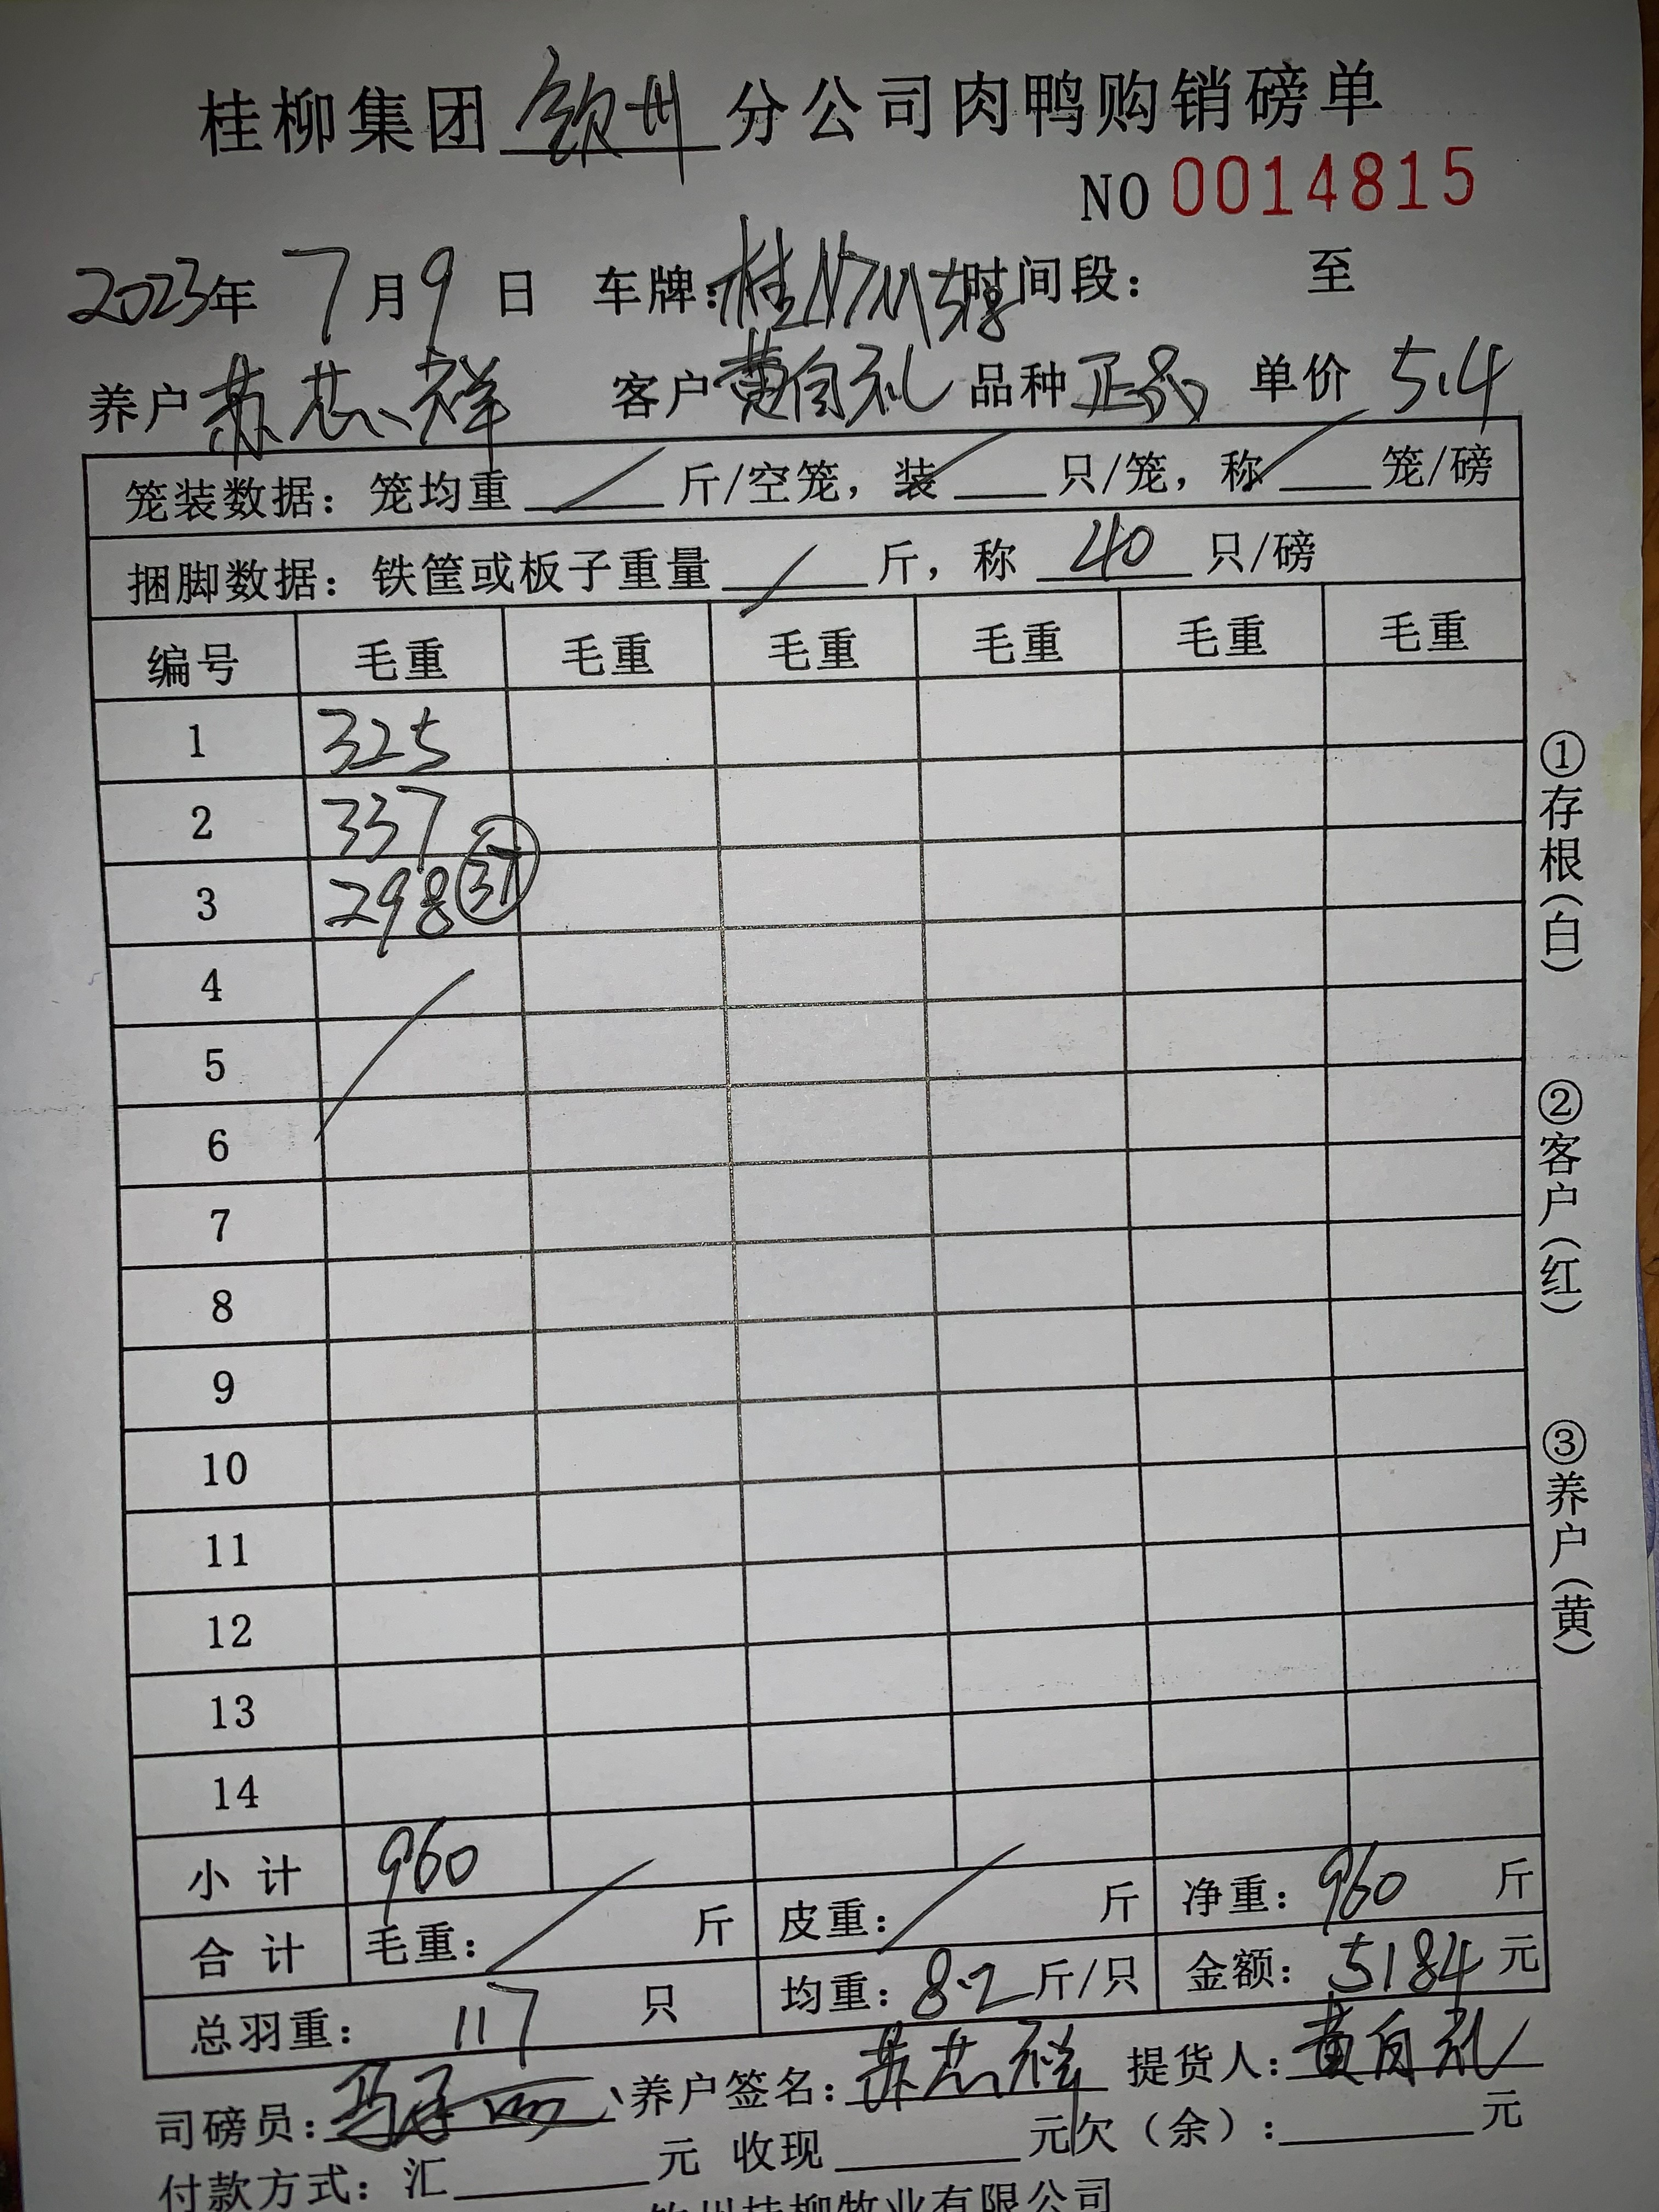 桂柳集团钦州分公司肉鸭购销磅单
NO 0014815
2023年 7月9日 车牌:桂 时间段: 至
养户 苏芯祥 客户 黄自礼 品种 正品 单价 5.4
笼装数据: 笼均重 / 斤/空笼, 装 / 只/笼, 称 / 笼/磅
捆脚数据: 铁筐或板子重量 / 斤, 称 40 只/磅
编号 毛重 毛重 毛重 毛重 毛重 毛重
1 325
2 337
3 298 37
4
5
6
7
8
9
10
11
12
13
14
小计 960
合计 毛重: / 斤 皮重: / 斤 净重: 960 斤
总羽重: 117 只 均重: 8.2 斤/只 金额: 5184 元
司磅员: 养户签名: 苏芯祥 提货人: 黄自礼
付款方式: 汇 元 收现 元欠(余): 元
钦州桂柳牧业有限公司
①存根(白)
②客户(红)
③养户(黄)